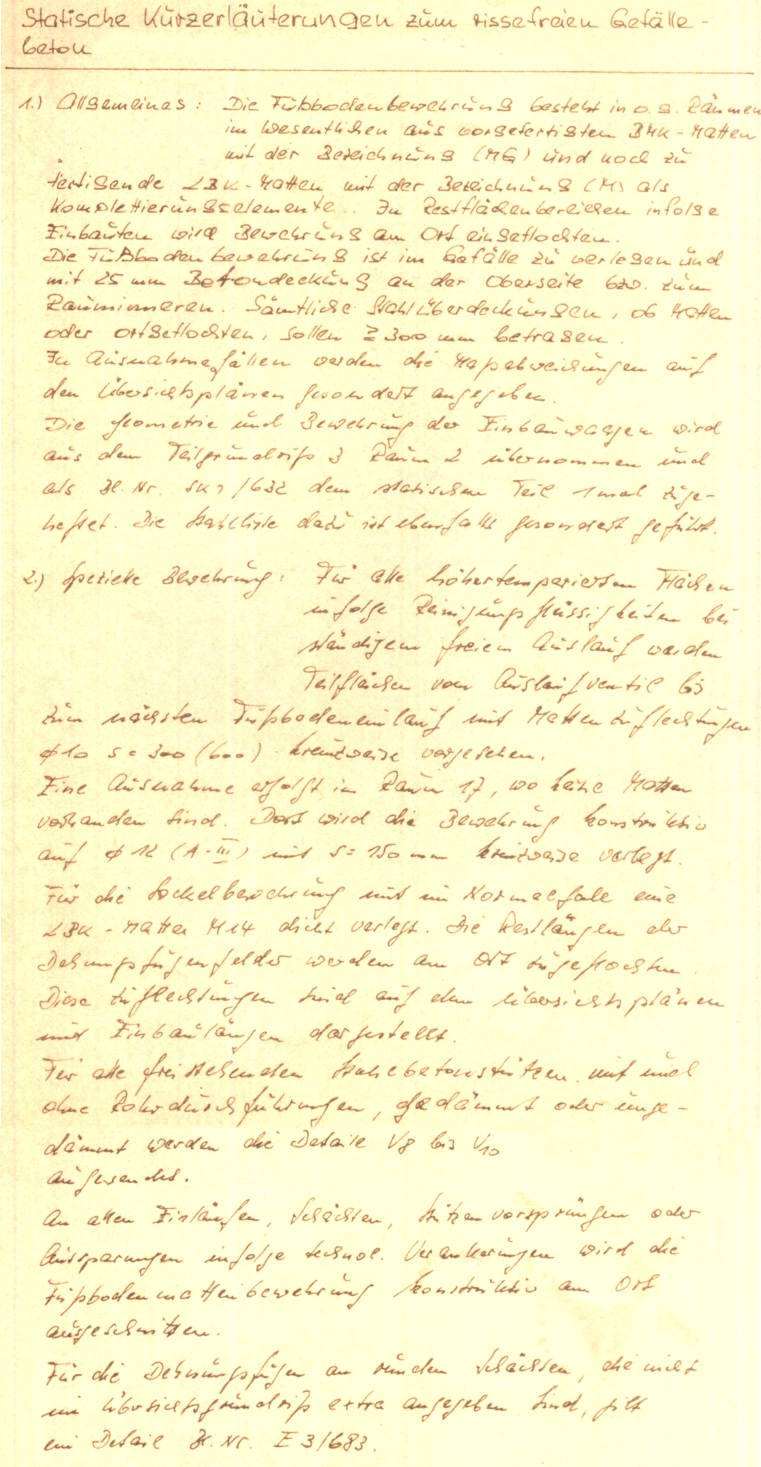 Statische Kurzerläuterungen zum rissefreien Gefälle-
beton
1.) Allgemeines: Die Fußbodenbewehrung besteht in o.g. Räumen
im wesentlichen aus vorgefertigten BMK-Matten
mit der Bezeichnung (MG) und noch zu
fertigende LBK-Matten mit der Bezeichnung (M) als
Komplettierungselemente. In Restflächenbereichen infolge
Einbauten wird Bewehrung am Ort eingeflochten.
Die Fußbodenbewehrung ist im Gefälle zu verlegen und
mit 25 mm Betondeckung an der Oberseite bzw. zum
Rauminneren. Sämtliche Stahlüberdeckungen, ob Matten
oder ortgeflochten, sollen ≥ 300 mm betragen.
In Ausnahmefällen werden die Maßabweichungen auf
den Übersichtsplänen gesondert angegeben.
Die Geometrie und Bewehrung der Einbauwaagen wird
aus dem Teilgrundriß 3 Raum 2 übernommen und
als Bl. Nr. SK 1/632 dem statischen Teil 1mal zuge-
heftet. Die Stahlliste dazu ist ebenfalls gesondert geführt.
2.) Spezielle Bewehrung: Für alle höhertemperierten Flächen
infolge Reinigungsflüssigkeiten bei
ständigem freiem Auslauf werden
Teilflächen vom Auslaufventil bis
zum nächsten Fußbodeneinlauf mit Mattenzuflechtungen
ϕ 10 s = 300 (600) kreuzweise vorgesehen.
Eine Ausnahme erfolgt im Raum 17, wo keine Matten
vorhanden sind. Dort wird die Bewehrung konstruktiv
auf ϕ 12 (A-III) mit s = 150 mm kreuzweise verlegt.
Für die Sockelbewehrung wird im Normalfalle eine
LBK-Matte M14 dicht verlegt. Die Restlängen der
Dehnungsfugenfelder werden am Ort zugeflochten.
Diese Zuflechtungen sind auf den Übersichtsplänen
mit Einbaulängen dargestellt.
Für alle freistehenden Stahlbetonstützen mit und
ohne Rohrdurchführungen, gedämmt oder unge-
dämmt werden die Details V8 bis V10
angewendet.
An allen Einläufen, Schächten, Stützenvorsprüngen oder
Aussparungen infolge technol. Verankerungen wird die
Fußbodenmattenbewehrung konstruktiv am Ort
ausgeschnitten.
Für die Dehnungsfugen an runden Schächten, die nicht
im Übersichtsgrundriß extra angegeben sind, gilt
ein Detail Bl. Nr. E 3/683.